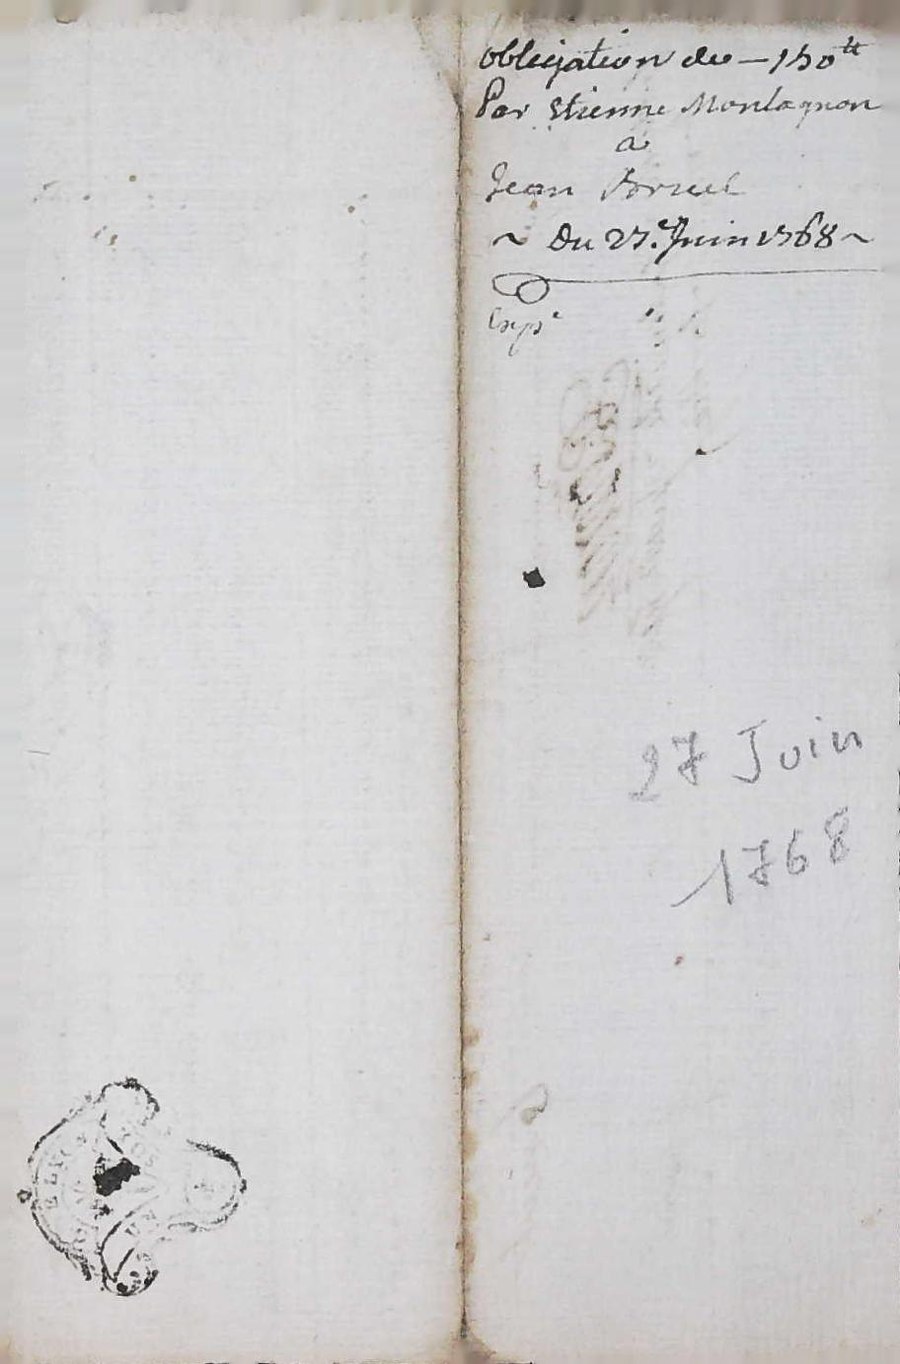 obligation de – 150ᵗᵗ
Par Etienne Montagnon
a
Jean Bruel
~ Du 27.ᵉ Juin 1768 ~
Expᵉ
27 Juin
1768